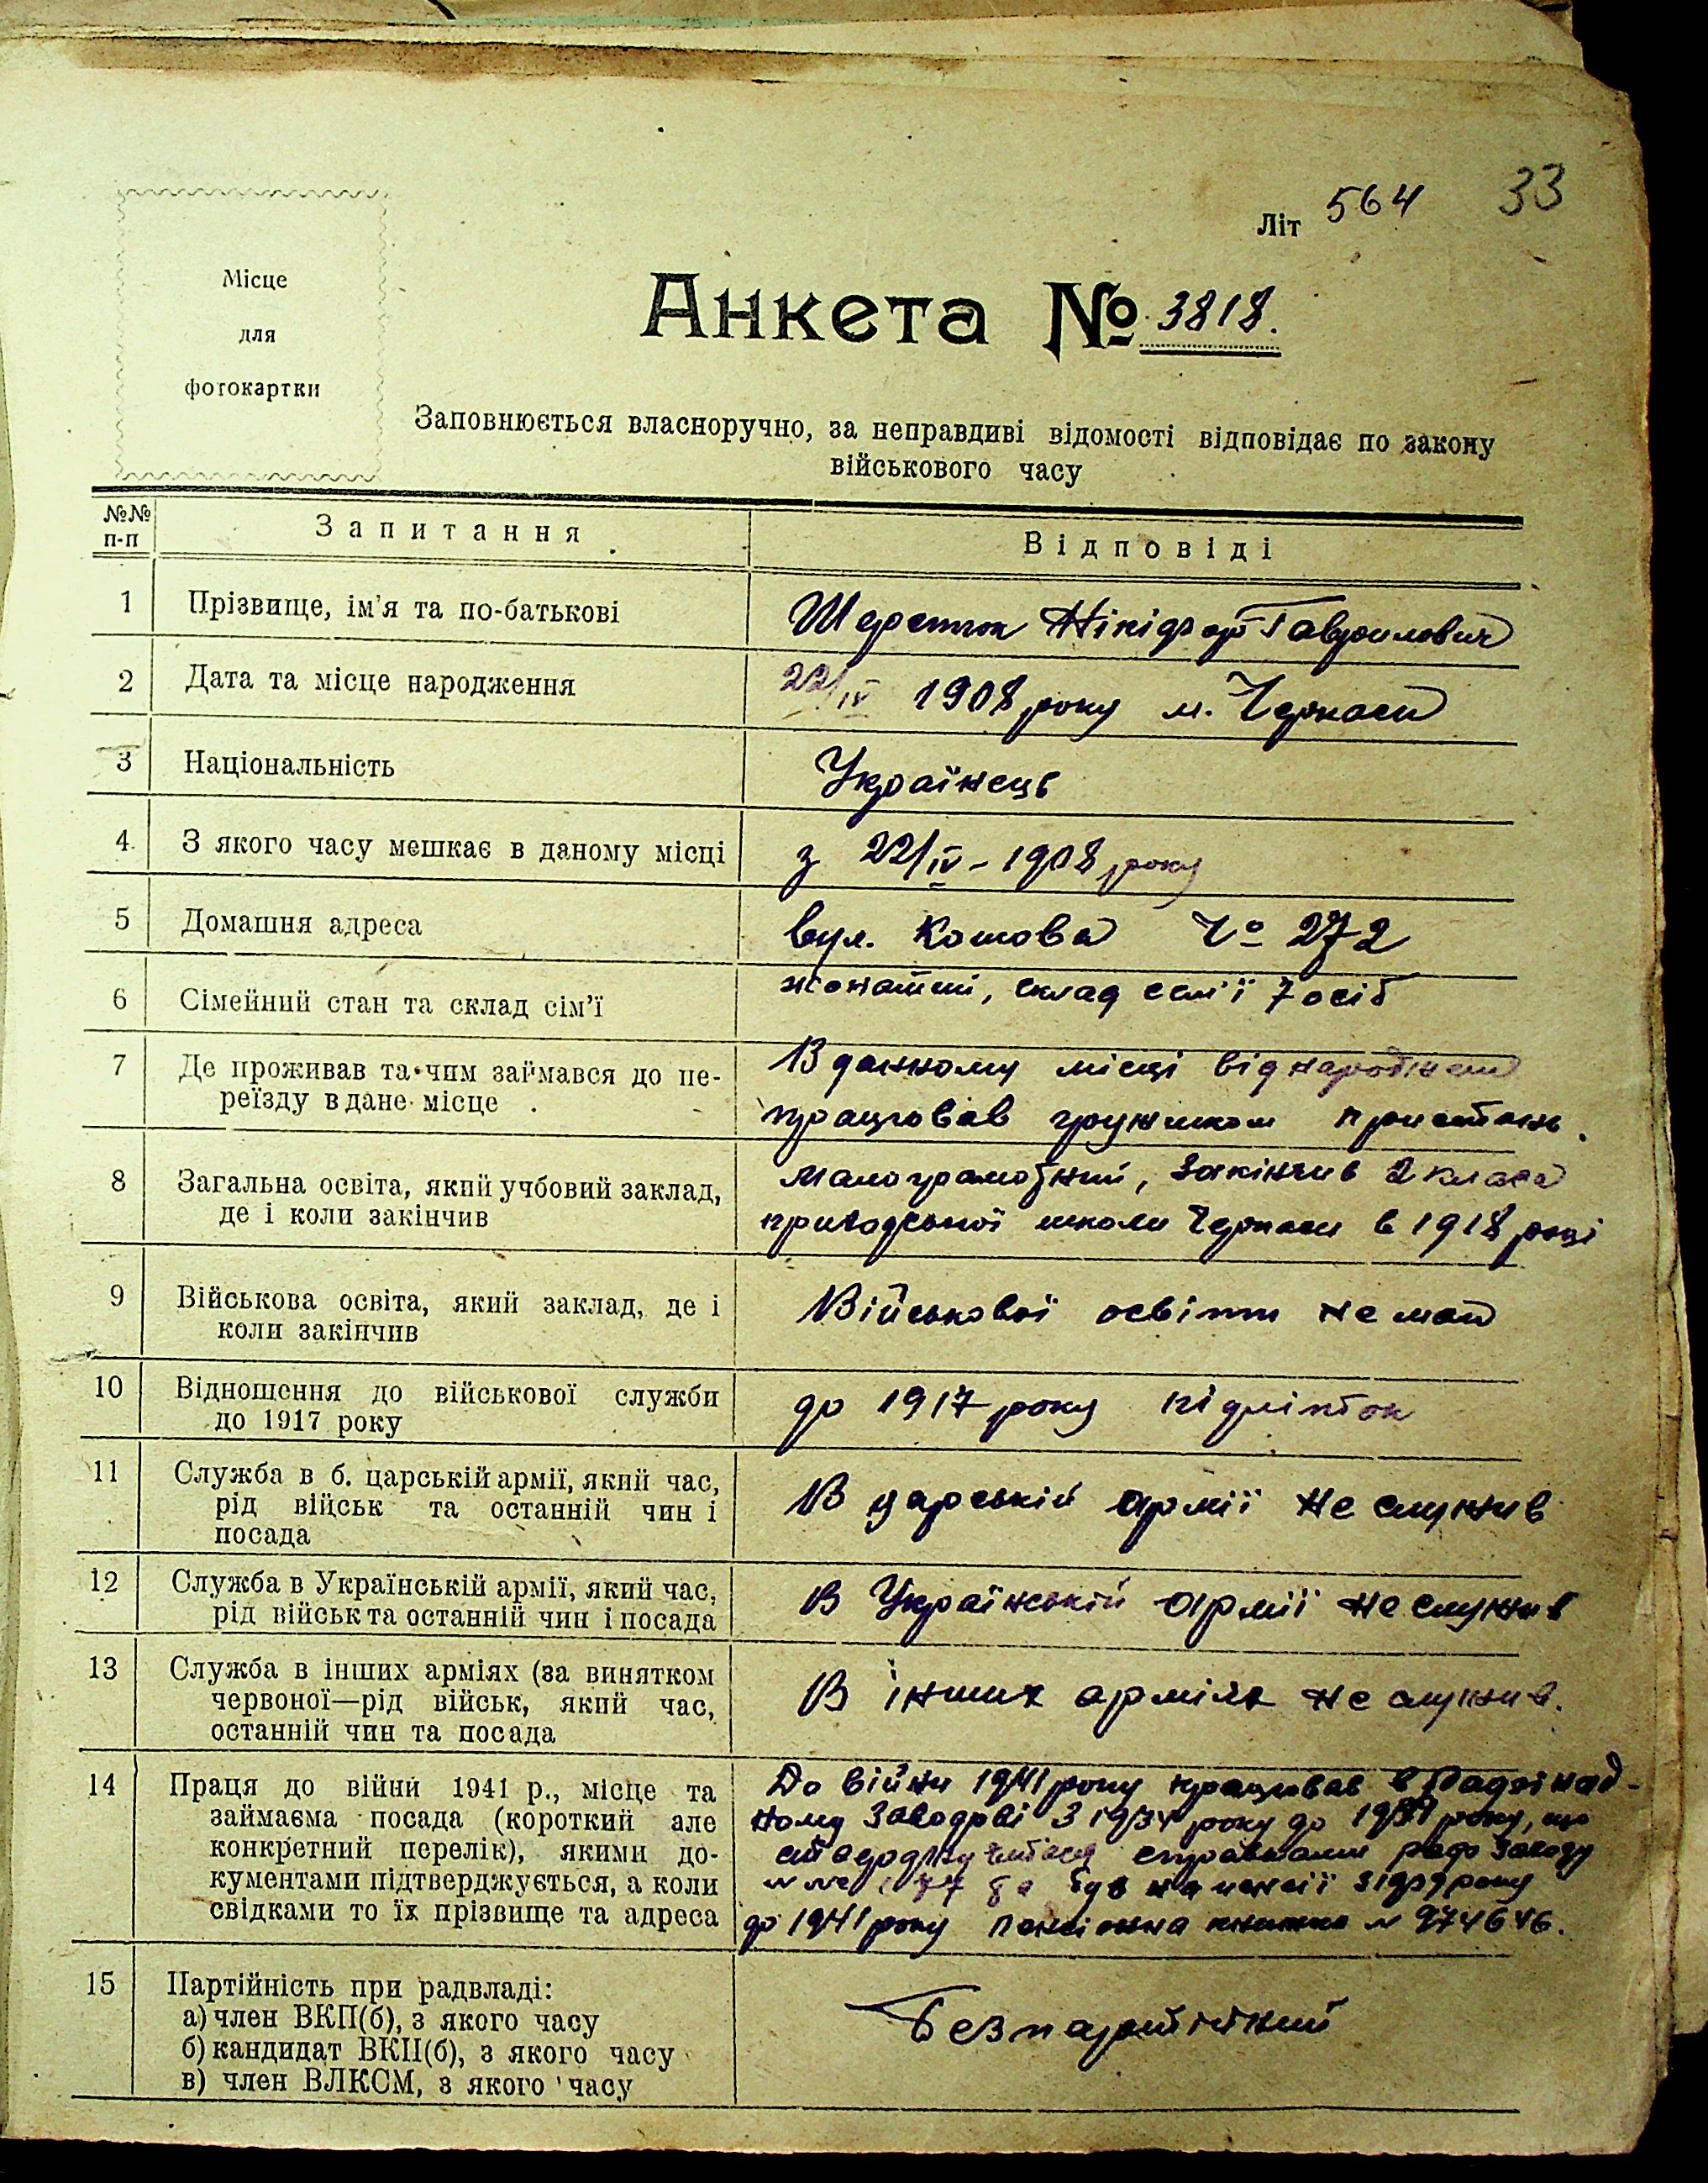 33
Літ 564
Місце
для
фотокартки
Анкета № 3818.
Заповнюється власноручно, за неправдиві відомості відповідає по закону
військового часу
№№ п-п
Запитання
Відповіді
1
Прізвище, ім'я та по-батькові
Шерсток Нікіфор Гаврилович
2
Дата та місце народження
22/IV 1908 року м. Черкаси
3
Національність
Українець
4
З якого часу мешкає в даному місці
з 22/IV - 1908 року
5
Домашня адреса
вул. Котова № 272
6
Сімейний стан та склад сім'ї
жонатий, склад сем'ї 7 осіб
7
Де проживав та чим займався до пе-
реїзду в дане місце
В данному місці від народження
працював грузчиком пристань.
8
Загальна освіта, який учбовий заклад,
де і коли закінчив
малограмотний, закінчив 2 класа
приходської школи Черкаси в 1918 році
9
Військова освіта, який заклад, де і
коли закінчив
Військової освіти не маю
10
Відношення до військової служби
до 1917 року
до 1917 року підліток
11
Служба в б. царській армії, який час,
рід військ та останній чин і
посада
В царській армії не служив
12
Служба в Українській армії, який час,
рід військ та останній чин і посада
В Українській армії не служив
13
Служба в інших арміях (за винятком
червоної—рід військ, який час,
останній чин та посада
В інших арміях не служив.
14
Праця до війни 1941 р., місце та
займаєма посада (короткий але
конкретний перелік), якими до-
кументами підтверджується, а коли
свідками то їх прізвище та адреса
До війни 1941 року працював в
заводові з 1934 року до року, що
був на пенсії
до 1941 року пенсіонна книжка № 974646.
15
Партійність при радвладі:
а) член ВКП(б), з якого часу
б) кандидат ВКП(б), з якого часу
в) член ВЛКСМ, з якого часу
Безпартійний